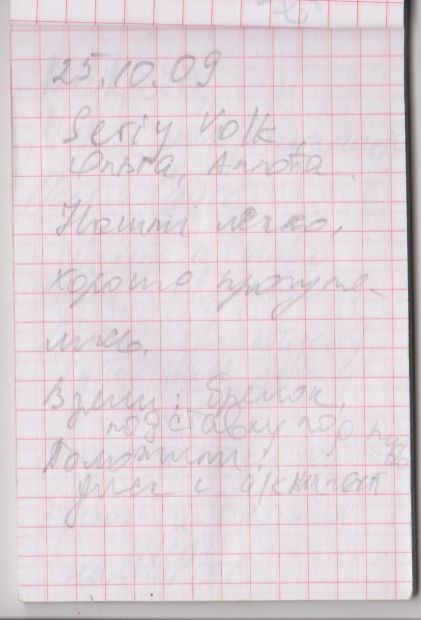 25.10.09
Seriy Volk
Ольга, Annota.
Нашли легко,
хорошо прогуля-
лись.
Взяли: брелок,
подставку под пиво
Положили:
диск с